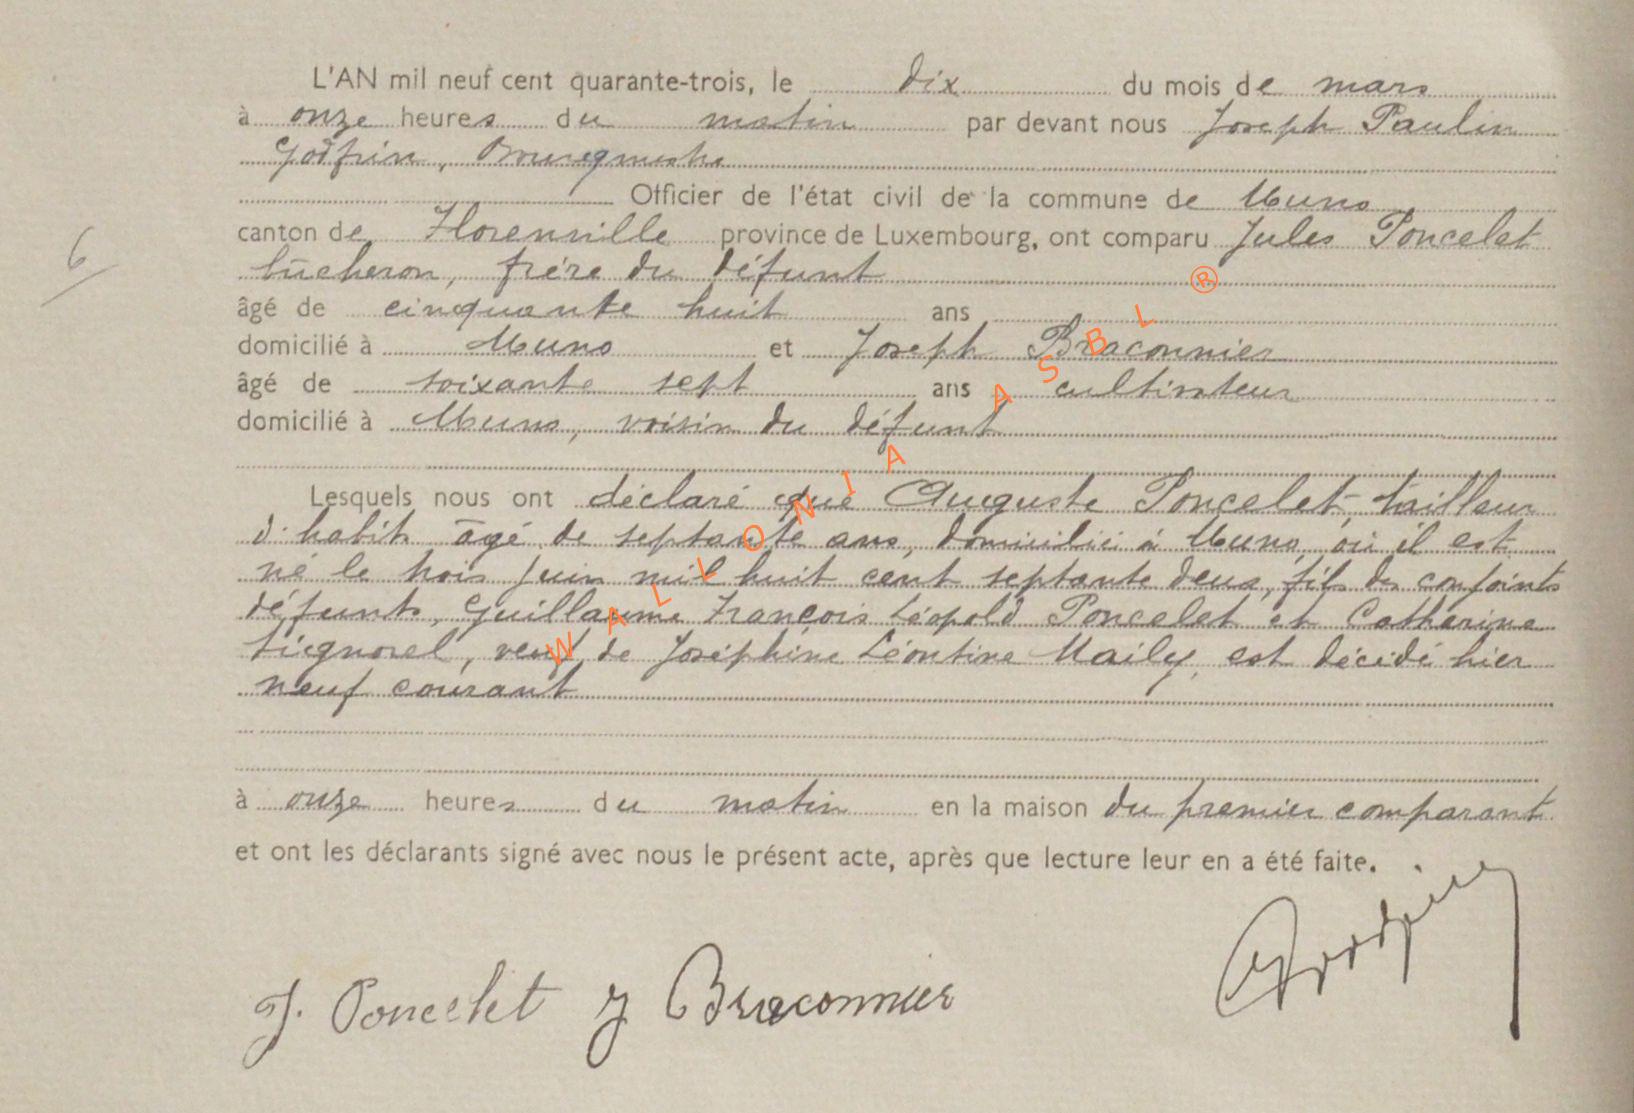 L'AN mil neuf cent quarante-trois, le dix du mois de mars
à onze heures du matin par devant nous Joseph Paulin
Godfrin, Bourgmestre
Officier de l'état civil de la commune de Muno
canton de Florenville province de Luxembourg, ont comparu Jules Poncelet
6
bûcheron, frère du défunt
âgé de cinquante huit ans
domicilié à Muno et Joseph Braconnier
âgé de soixante sept ans cultivateur
domicilié à Muno, voisin du défunt
Lesquels nous ont déclaré que Auguste Poncelet, tailleur
d'habits âgé de septante ans, domicilié à Muno, où il est
né le trois juin mil huit cent septante deux, fils des conjoints
défunts, Guillaume François Léopold Poncelet et Catherine
veuf de Joséphine Léontine Maily, est décédé hier
neuf courant
à onze heures du matin en la maison du premier comparant
et ont les déclarants signé avec nous le présent acte, après que lecture leur en a été faite.
J. Poncelet J Braconnier
WALLONIA ASBL ®